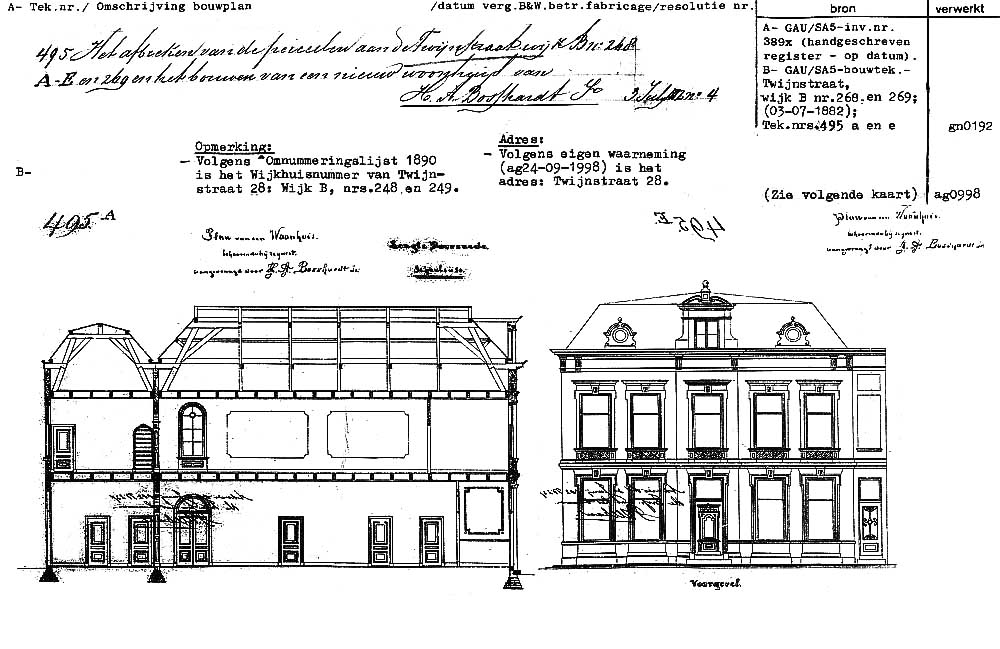 A- Tek.nr./ Omschrijving bouwplan /datum verg.B&W.betr.fabricage/resolutie nr.
bron
verwerkt
495 Het afbreken van de perceelen aan de Twijnstraat wijk B nr. 268
A-E en 269 en het bouwen van een nieuw woonhuis van
H. A. Bosshardt Jr 3 July nr 4
A- GAU/SA5-inv.nr.
389x (handgeschreven
register - op datum).
B- GAU/SA5-bouwtek.-
Twijnstraat,
wijk B nr.268.en 269;
(03-07-1882);
Tek.nrs.495 a en e
gn0192
B-
Opmerking:
- Volgens "Omnummeringslijst 1890
is het Wijkhuisnummer van Twijn-
straat 28: Wijk B, nrs.248.en 249.
Adres:
- Volgens eigen waarneming
(ag24-09-1998) is het
adres: Twijnstraat 28.
(Zie volgende kaart)
ag0998
495 A
Plan van een Woonhuis.
behoorende bij request.
aangevraagd door H. A. Bosshardt Jr
Lengte Doorsnede.
495 E
Plan van een Woonhuis.
behoorende bij request.
aangevraagd door H. A. Bosshardt Jr
Voorgevel.